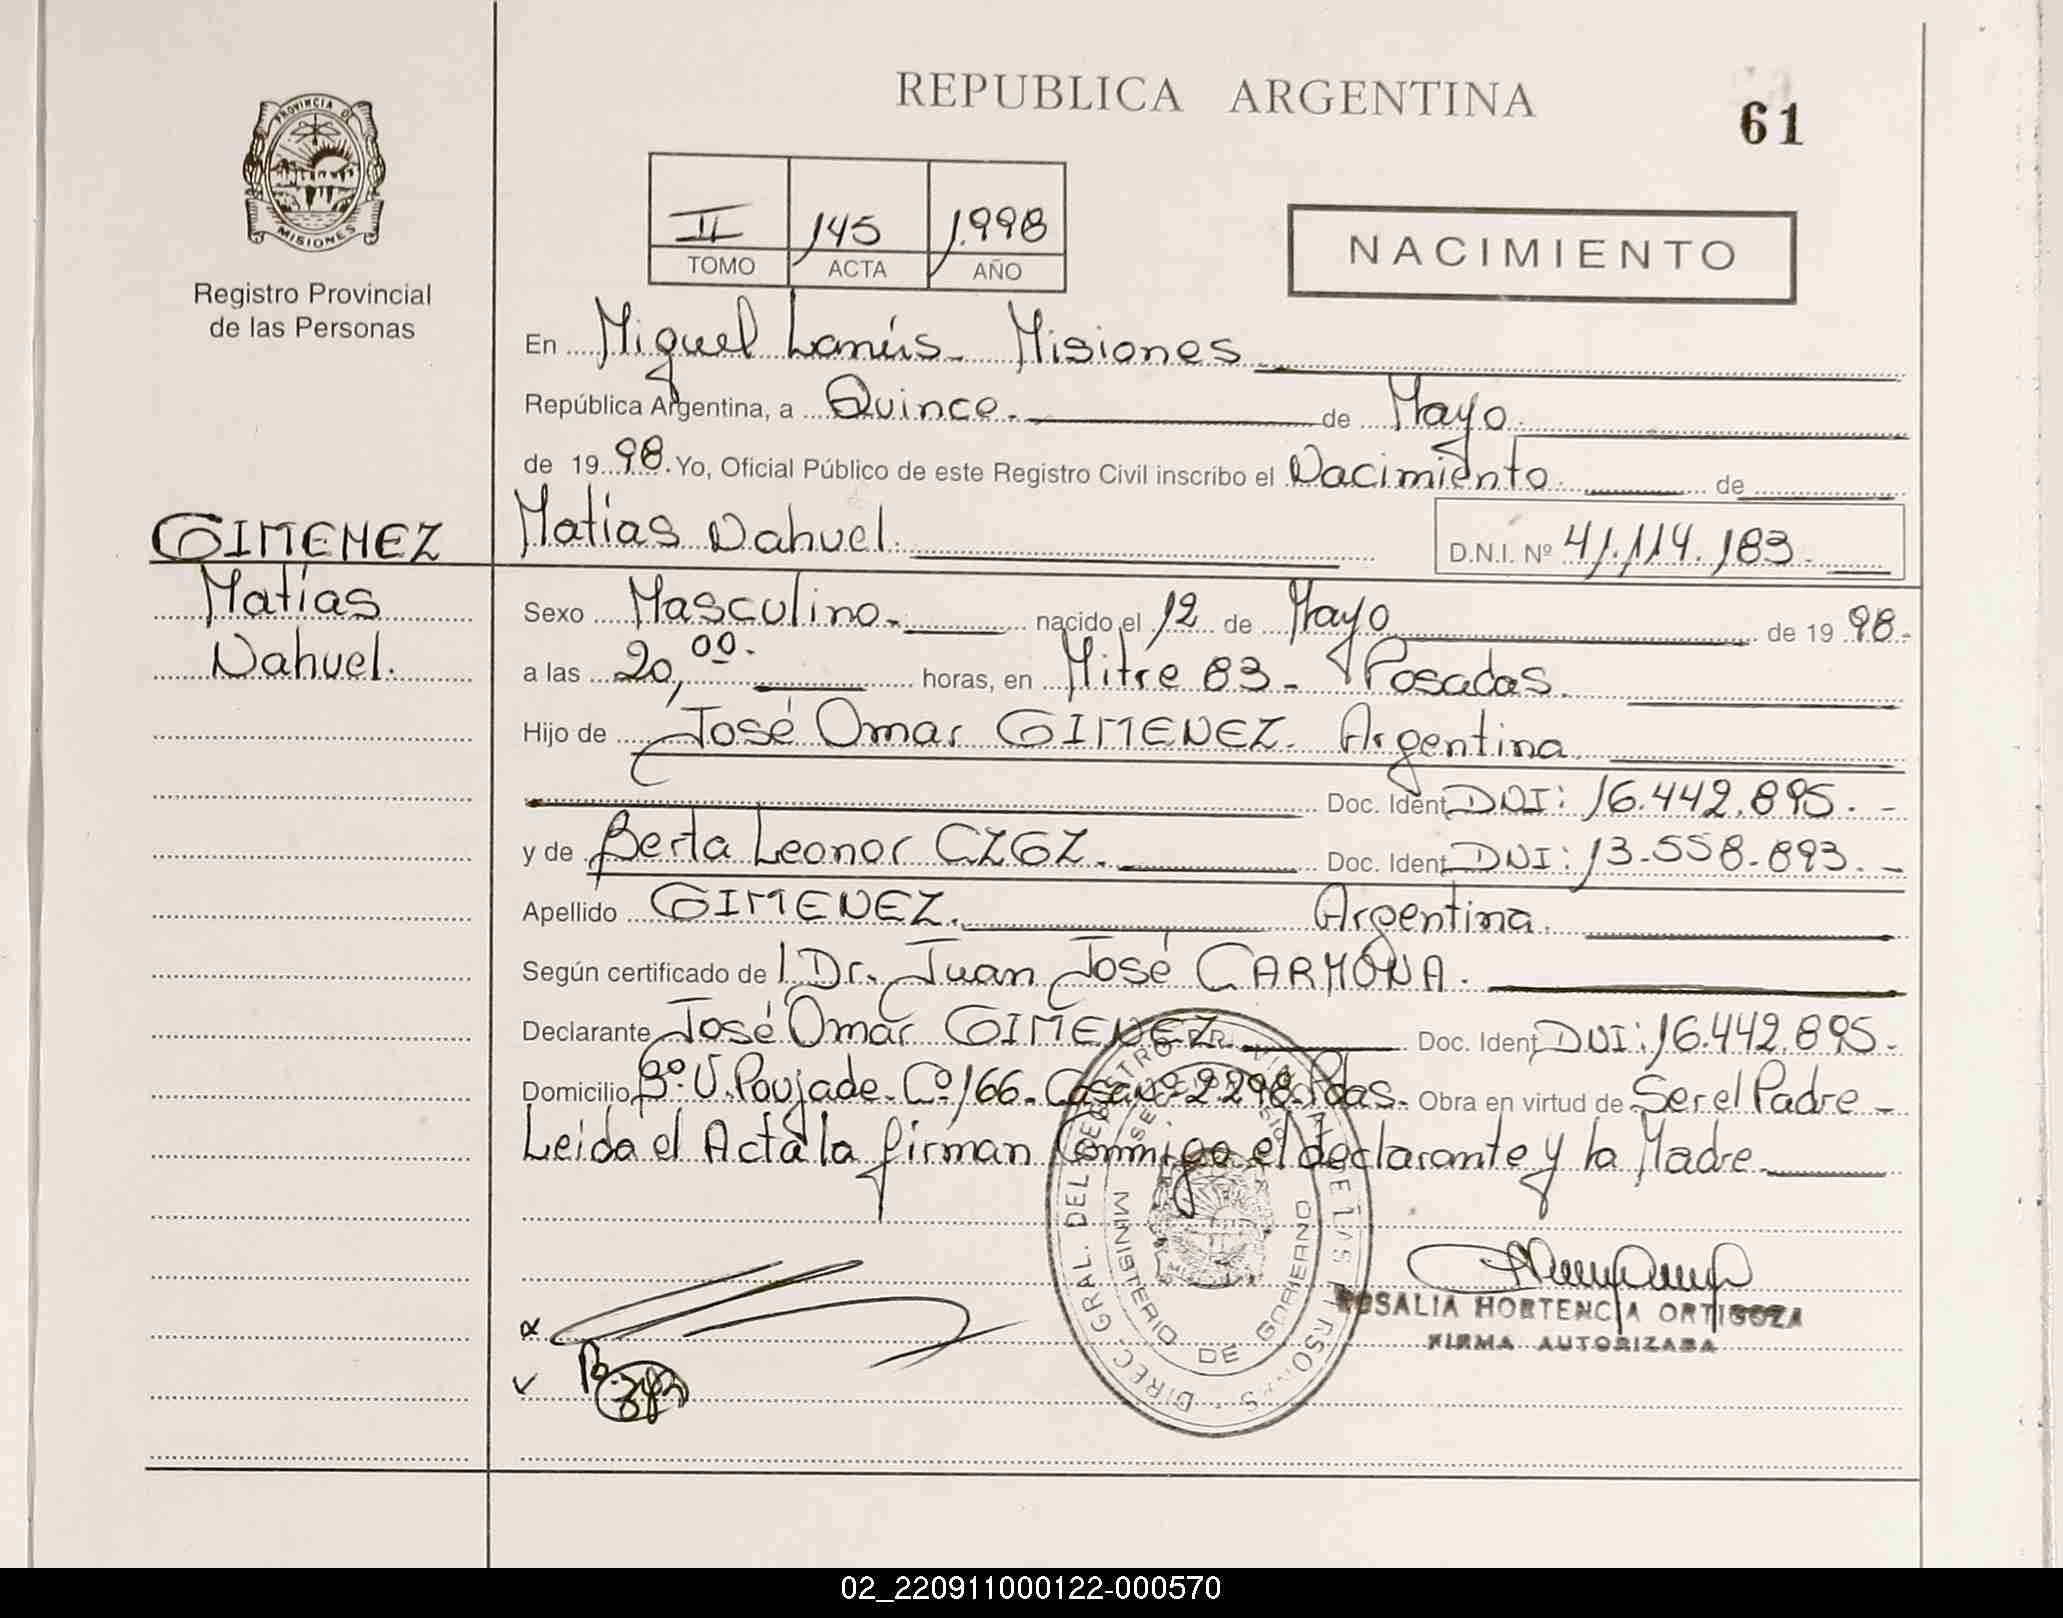 REPUBLICA ARGENTINA
61
PROVINCIA DE MISIONES
Registro Provincial
de las Personas
II 145 1.998
TOMO ACTA AÑO
NACIMIENTO
En Miguel Lanús - Misiones
República Argentina, a Quince. de Mayo
de 1998. Yo, Oficial Público de este Registro Civil inscribo el Nacimiento de
GIMENEZ
Matías
Nahuel.
Matías Nahuel. D.N.I. Nº 41.114.183.
Sexo Masculino. nacido el 12 de Mayo de 1998.
a las 20,00. horas, en Mitre 83 - Posadas.
Hijo de José Omar GIMENEZ. Argentina
Doc. Ident. DNI: 16.442.895. -
y de Berta Leonor CZGZ. Doc. Ident. DNI: 13.558.893. -
Apellido GIMENEZ. Argentina.
Según certificado de l Dr. Juan José CARMONA.
Declarante José Omar GIMENEZ Doc. Ident. DNI: 16.442.895.
Domicilio Bº. V. Poujade. Cº 166. Casa nº 2298. Pdas. Obra en virtud de Ser el Padre -
Leida el Acta la firman Conmigo el declarante y la Madre
DIREC. GRAL. DEL REGISTRO PROVINCIAL DE LAS PERSONAS
MINISTERIO DE GOBIERNO
ROSALIA HORTENCIA ORTIGOZA
FIRMA AUTORIZADA
02_220911000122-000570